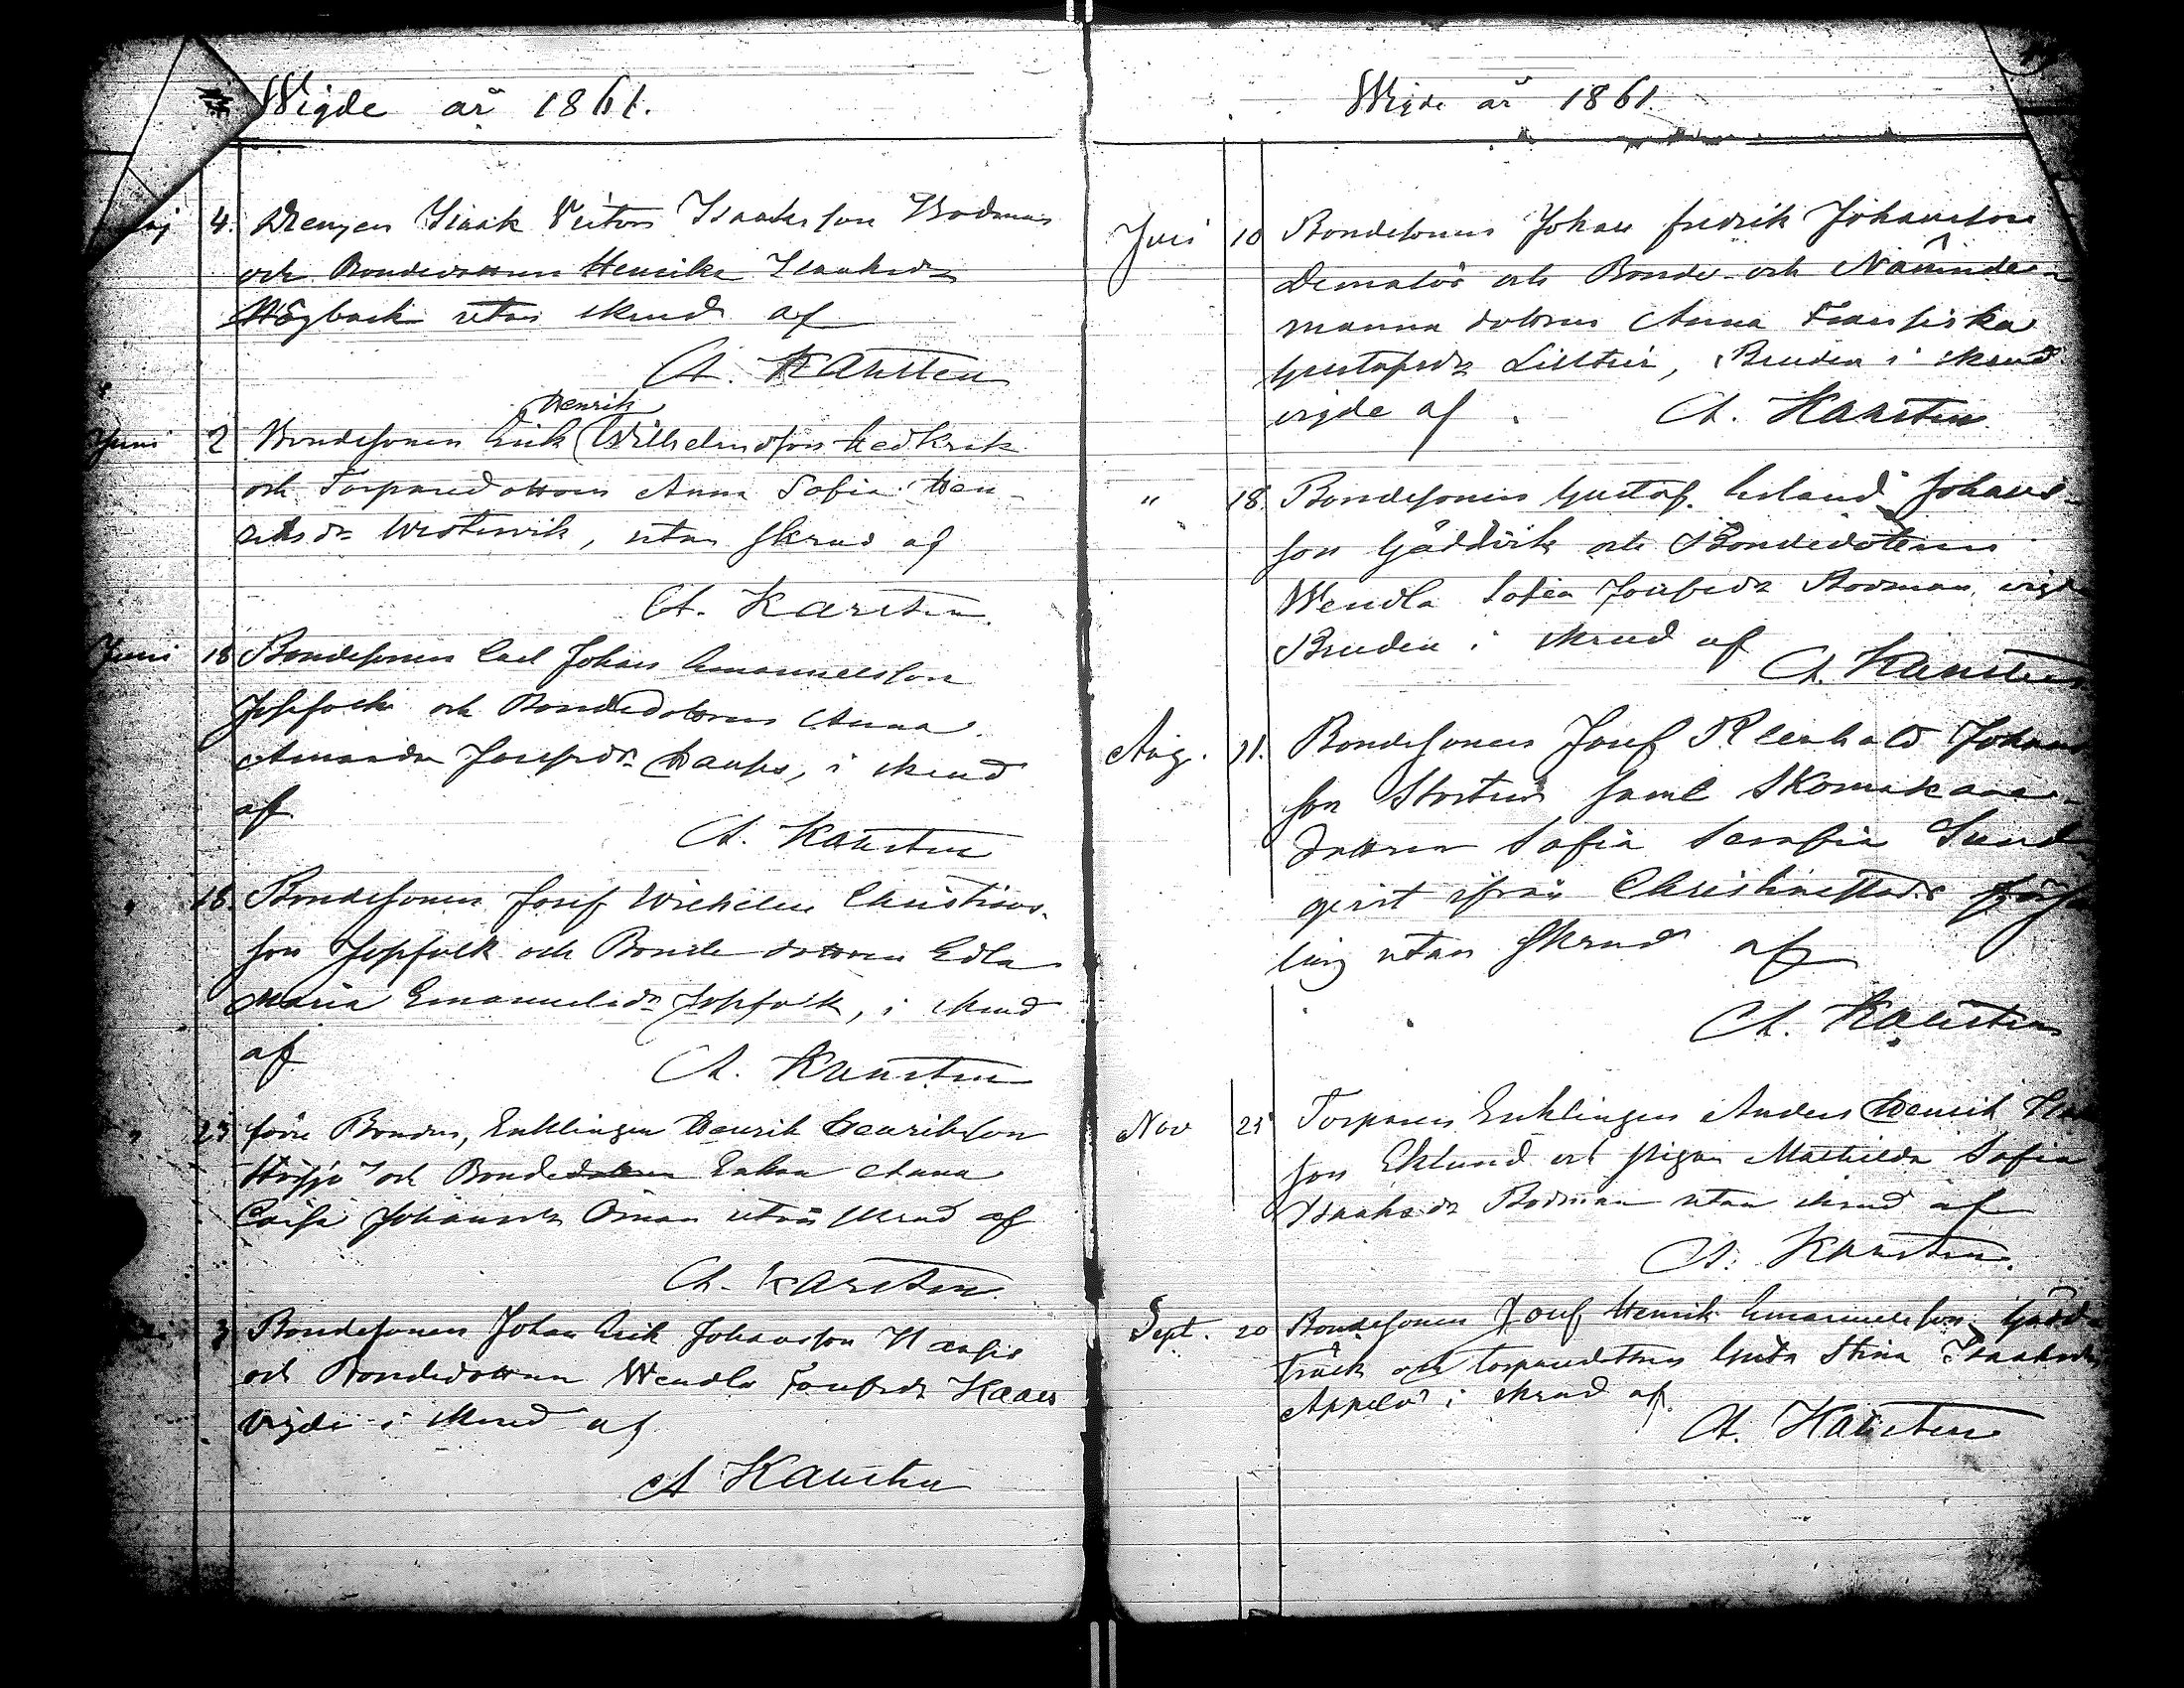 Wigde år 1861.
Maj 4. Drengen Isaak Victor Isaaksson Bodman
och Bondedottren Henrika Isaaksdr
Högback utan skrud af
A. Karsten
Henrik
Juni 2 Bondesonen Erik Wilhelmsson
och Torparedottren Anna Sofia Hen-
riksdr Westervik, utan skrud af
A. Karsten.
Juni 18 Bondesonen Carl Johan Emanuelsson
Jossfolk och Bondedottren Anna
Amanda Josefsdr, i skrud
af
A. Karsten
" 18. Bondesonen Josef Wilhelm Christians-
son Jossfolk och Bonde dottren Edla
Maria Emanuelsdr Jossfolk, i skrud
af
A. Karsten
" 23 förre Bonden, Enklingen Henrik Henriksson
och Bondedottren Enkan Anna
Caisa Johansdr Öman utan skrud af
A. Karsten
3 Bondesonen Johan Erik Johansson
och Bondedottren Wendla Josefsdr
vigde i skrud af
A Karsten
Wigde år 1861.
Juli 10 Bondesonen Johan Fredrik Johansson
och Bonde- och Nämnde-
manna dottren Anna Fransiska
Gustafsdr Lillteir, Bruden i skrud
vigde af A. Karsten
" 18. Bondesonen Gustaf Erland Johans-
son Gäddvik och Bondedottren
Wendla Sofia Josefsdr Bodman, vigde
Bruden i skrud af
A. Karsten
Aug. 11. Bondesonen Josef Johans
son samt Skomakare-
dottren Sofia Serafia Sund
qvist ifrån Christinestads
ling utan skrud af
A. Karsten
Nov 25 Torparen Enklingen Anders Henrik
son Eklund och pigan Mathilda Sofia
Isaaksdr Bodman utan skrud af
A. Karsten.
Sept. 20 Bondesonen Josef Henrik Emanuelsson Gädd-
träsk och torparedottren Greta Stina Isaaksdr
Appelö i skrud af
A. Karsten